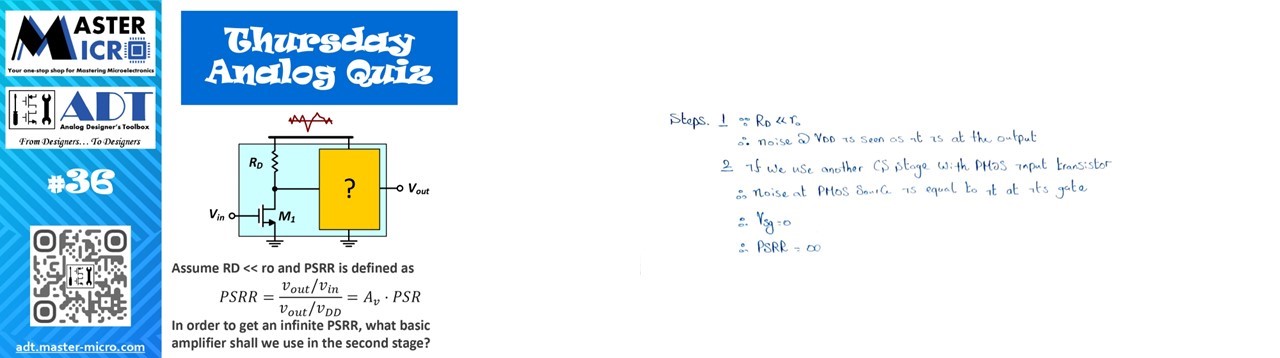 MASTER
MICRO
Your one-stop shop for Mastering Microelectronics
ADT
Analog Designer's Toolbox
From Designers... To Designers
#36
adt.master-micro.com
Thursday
Analog Quiz
RD
?
Vout
Vin
M1
Assume RD << ro and PSRR is defined as
PSRR = (vout/vin)/(vout/vDD) = Av · PSR
In order to get an infinite PSRR, what basic
amplifier shall we use in the second stage?
Steps. 1 ∵ RD << ro
∴ noise @ VDD is seen as it is at the output
2 if we use another CS stage with PMOS input transistor
∴ Noise at PMOS Source is equal to it at its gate
∴ Vsg = 0
∴ PSRR = ∞